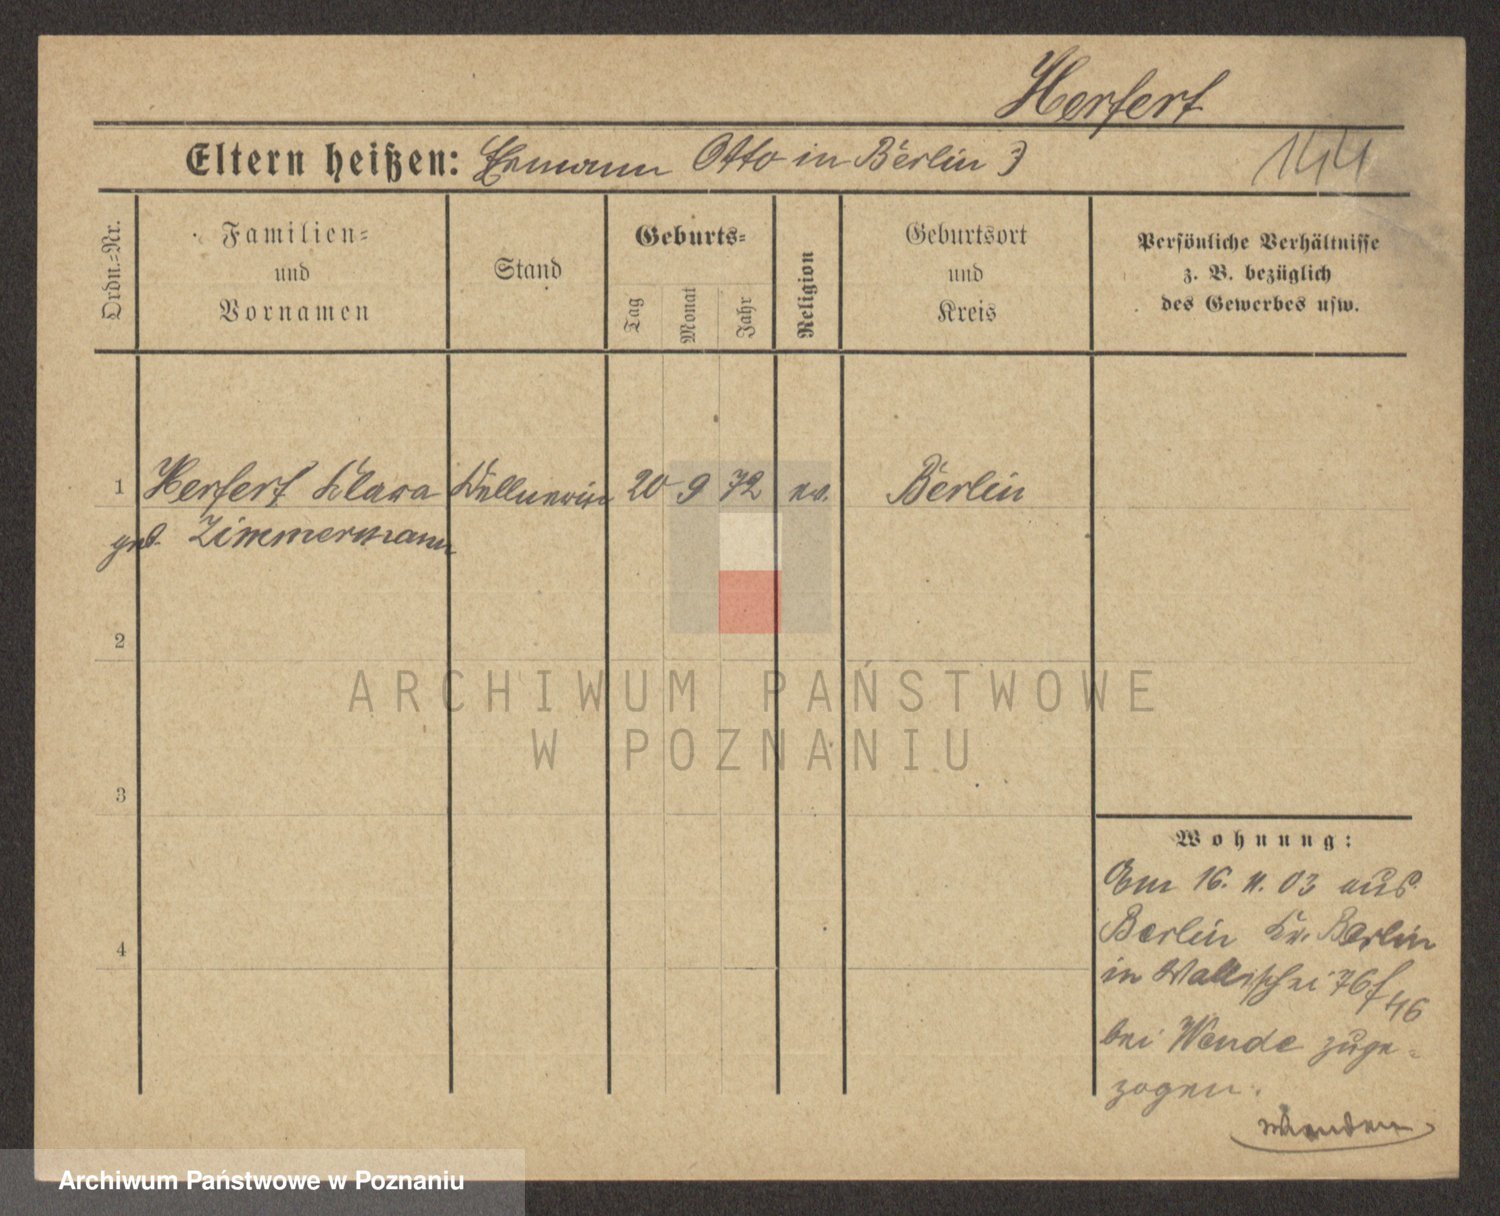 Herfert
Eltern heißen: Ehmann Otto in Berlin 3
144
Ordn.-Nr.
Familien-
und
Vornamen
Stand
Geburts-
Tag
Monat
Jahr
Religion
Geburtsort
und
Kreis
Persönliche Verhältnisse
z. B. bezüglich
des Gewerbes usw.
1 Herfert Klara Kellnerin 20 9 72 ev. Berlin
geb. Zimmermann
2
3
4
Wohnung:
Am 16. 11. 03 aus
Berlin Kr. Berlin
in Wallischei 76f
46
bei Wende zuge-
zogen.
wenden
ARCHIWUM PAŃSTWOWE
W POZNANIU
Archiwum Państwowe w Poznaniu